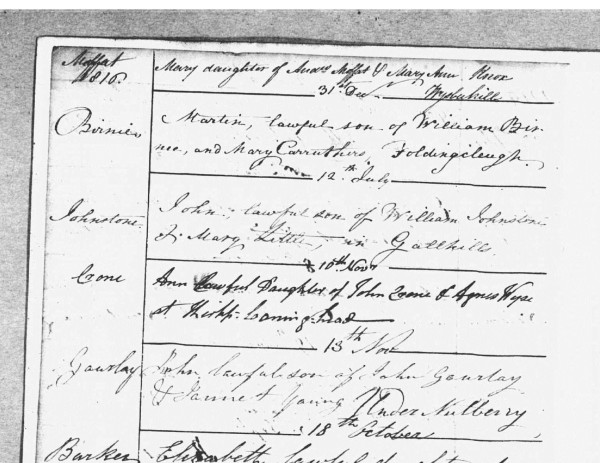 Moffat Mary daughter of Andw Moffat & Mary Ann Knox
1816. 31st Dec
Birnie Martin, lawful son of William Bir-
nie, and Mary Carruthers, Foldingcleugh.
12th July
Johnstone. John, lawful son of William Johnstone
& Mary Little, in Gallhills.
10th Novr
Crone Ann Lawful Daughter of John Crone & Agnes Wyse
at Kirkp. Loaning-head
13th Nov
Gourlay John lawful son of John Gourlay
& Jannet Young Under Mulberry
18th October
Barker Elizabeth lawful